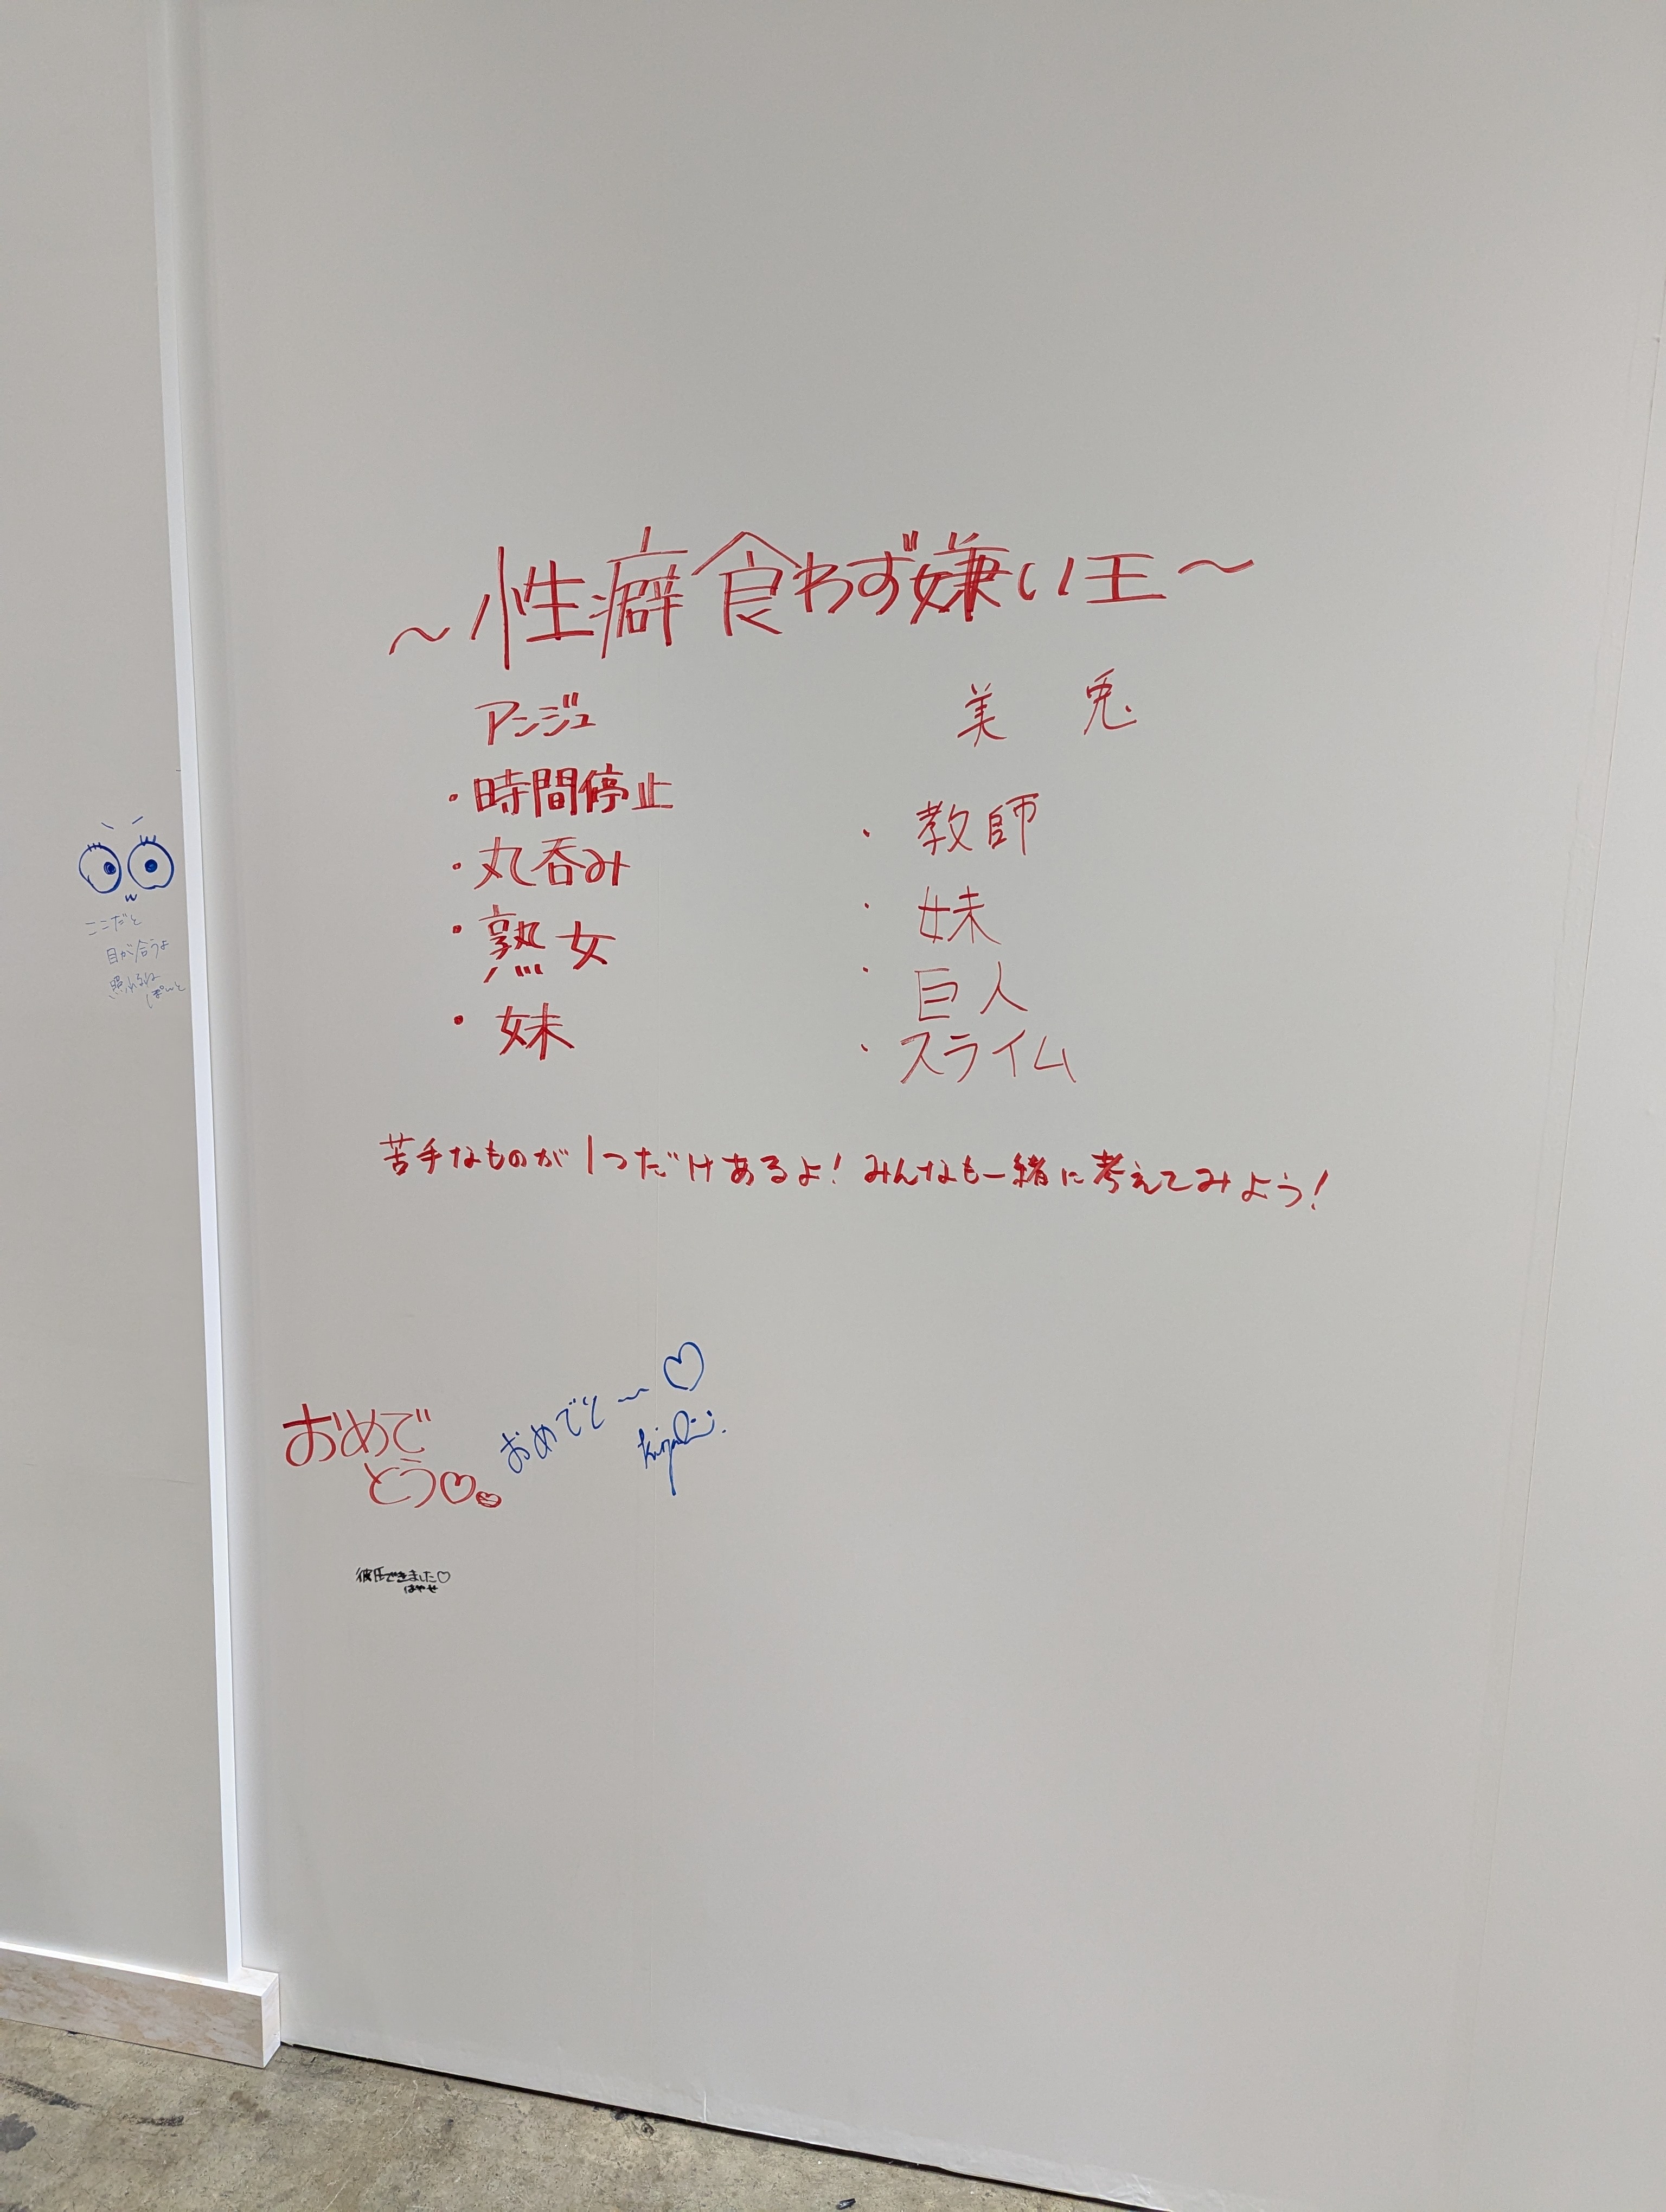 ～性癖食わず嫌い王～
アンジュ
・時間停止
・丸呑み
・熟女
・妹
美 兎
・教師
・妹
・巨人
・スライム
苦手なものが1つだけあるよ！みんなも一緒に考えてみよう！
ここだと
目が合うよ
照れるね
おめで
とう♡
おめでと～♡
彼氏できました♡
はやせ